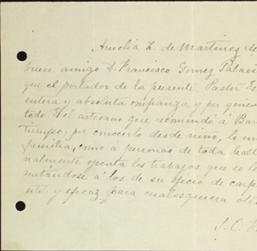 Amelia Z. de Martinez de
buen amigo D. Francisco Gomez Palacio
que el portador de la presente, Pastor
entera y absoluta confianza, y por
todo. Es el artesano que recomendó á
tiempo por conocerlo desde niño, lo
familia, como á persona de toda
nalmente ejecuta los trabajos que se le
mitándose á los de su oficio de carp
util y eficaz para cualesquiera